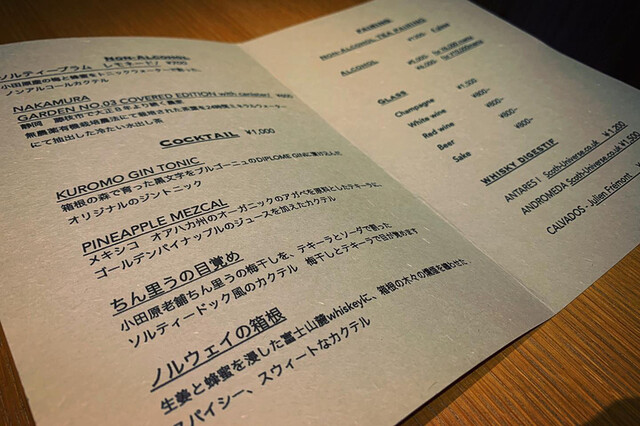 NON-ALCOHOL
ソルティープラム レモネード/ ¥700
ノンアルコールカクテル
NAKAMURA
GARDEN NO 03 COVERED EDITION with
にて抽出した冷たい水出し茶
COCKTAIL ¥1,000
KUROMO GIN TONIC
箱根の森で育った黒文字をブルゴーニュのDIPLOME GINに漬け込んだ
オリジナルのジントニック
PINEAPPLE MEZCAL
メキシコ オアハカ州のオーガニックのアガベを原料としたテキーラに
ゴールデンパイナップルのジュースを加えたカクテル
ちん里うの目覚め
小田原老舗ちん里うの梅干しを、テキーラとソーダで割った
ソルティードック風のカクテル 梅干しとテキーラで目が覚めます
ノルウェイの箱根
生姜と蜂蜜を浸した富士山麓whiskeyに、箱根の木々の燻製を纏わせた
スパイシー、スウィートなカクテル
PAIRING
NON-ALCOHOL TEA PAIRING
ALCOHOL
GLASS
Champagne ¥1,500
White wine ¥800~
Red wine ¥800~
Beer ¥800~
Sake ¥800~
WHISKY DIGESTIF
ANTARES / Scotch-Universe.co.uk ¥1,200
ANDROMEDA Scotch-Universe.co.uk ¥1,500
CALVADOS - Julien Frémont